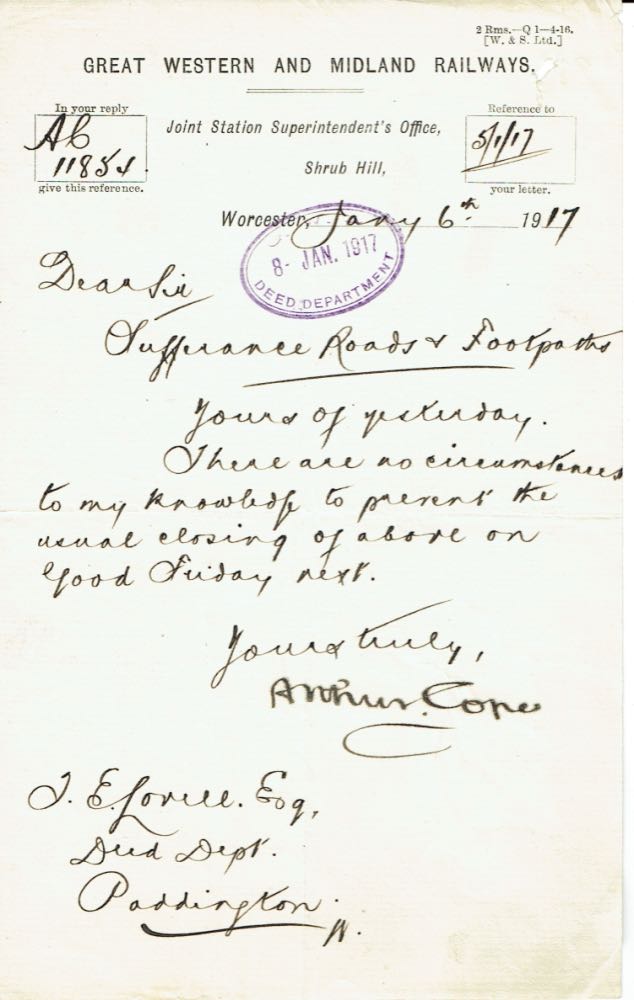 2 Rms.—Q 1—4-16.
[W. & S. Ltd.]
GREAT WESTERN AND MIDLAND RAILWAYS.
In your reply
AC
11854.
give this reference.
Joint Station Superintendent's Office,
Shrub Hill,
Reference to
5/1/17
your letter.
Worcester, Jany 6th 1917
8- JAN. 1917
DEED DEPARTMENT
Dear Sir
Sufferance Roads & Footpaths
Yours of yesterday.
There are no circumstances
to my knowledge to prevent the
usual closing of above on
Good Friday next.
Yours truly,
Arthur. Cope
E. Lovell. Esq,
Deed Dept.
Paddington.
W.